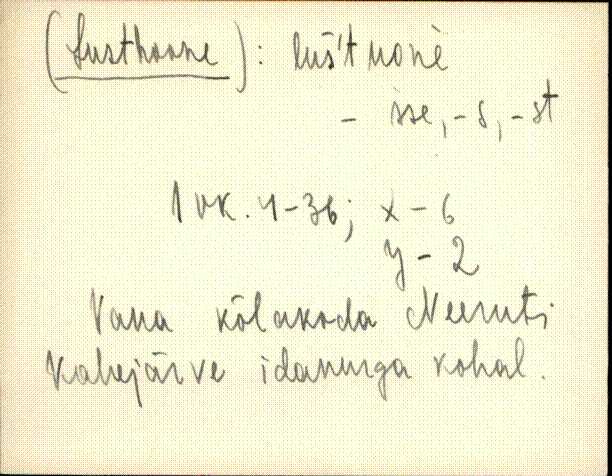 (Lusthoone): luš't uonè
- sse, -s, -st
1 vk. 4-36; x - 6
y - 2
Vana kõlakoda Neeruti
Kahejärve idanurga kohal.